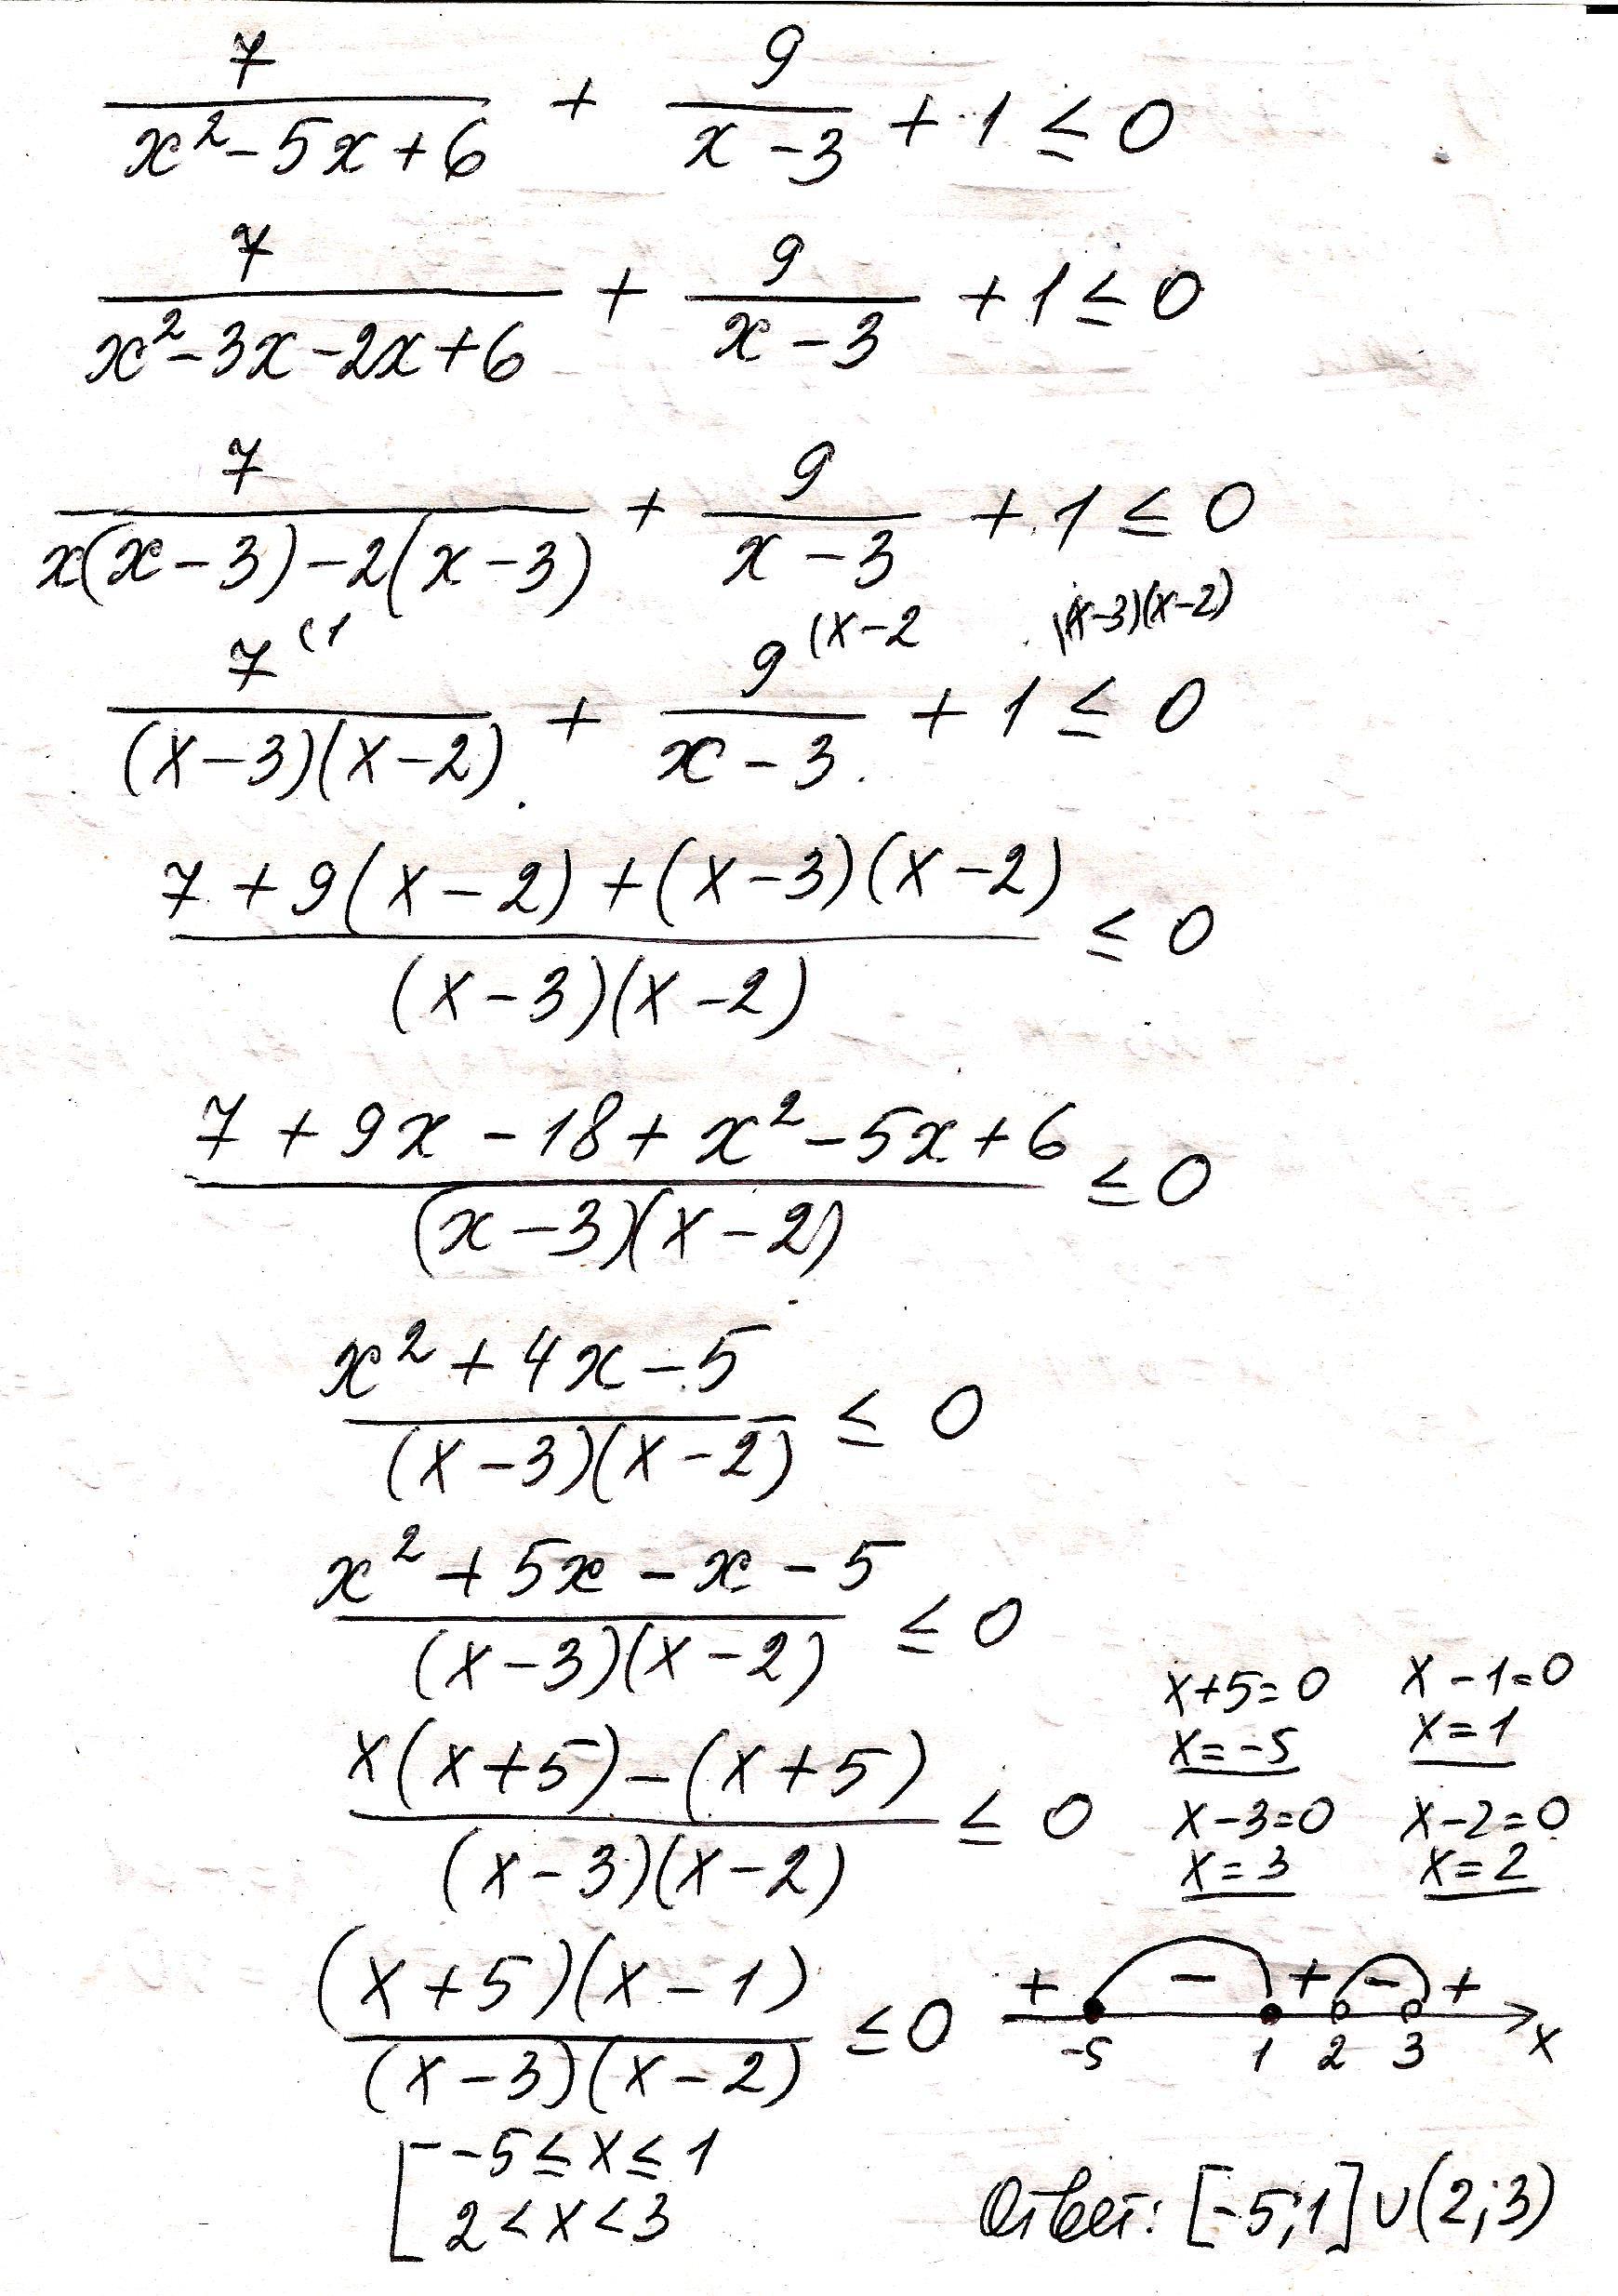 7/(x²-5x+6) + 9/(x-3) + 1 ≤ 0
7/(x²-3x-2x+6) + 9/(x-3) + 1 ≤ 0
7/(x(x-3)-2(x-3)) + 9/(x-3) + 1 ≤ 0
(1 (x-2 (x-3)(x-2)
7/((x-3)(x-2)) + 9/(x-3) + 1 ≤ 0
(7+9(x-2)+(x-3)(x-2))/((x-3)(x-2)) ≤ 0
(7+9x-18+x²-5x+6)/((x-3)(x-2)) ≤ 0
(x²+4x-5)/((x-3)(x-2)) ≤ 0
(x²+5x-x-5)/((x-3)(x-2)) ≤ 0
(x(x+5)-(x+5))/((x-3)(x-2)) ≤ 0
x+5=0 x-1=0
x=-5 x=1
x-3=0 x-2=0
x=3 x=2
((x+5)(x-1))/((x-3)(x-2)) ≤ 0
+ - + - +
-5 1 2 3 x
[ -5≤x≤1
2<x<3
Ответ: [-5;1]∪(2;3)